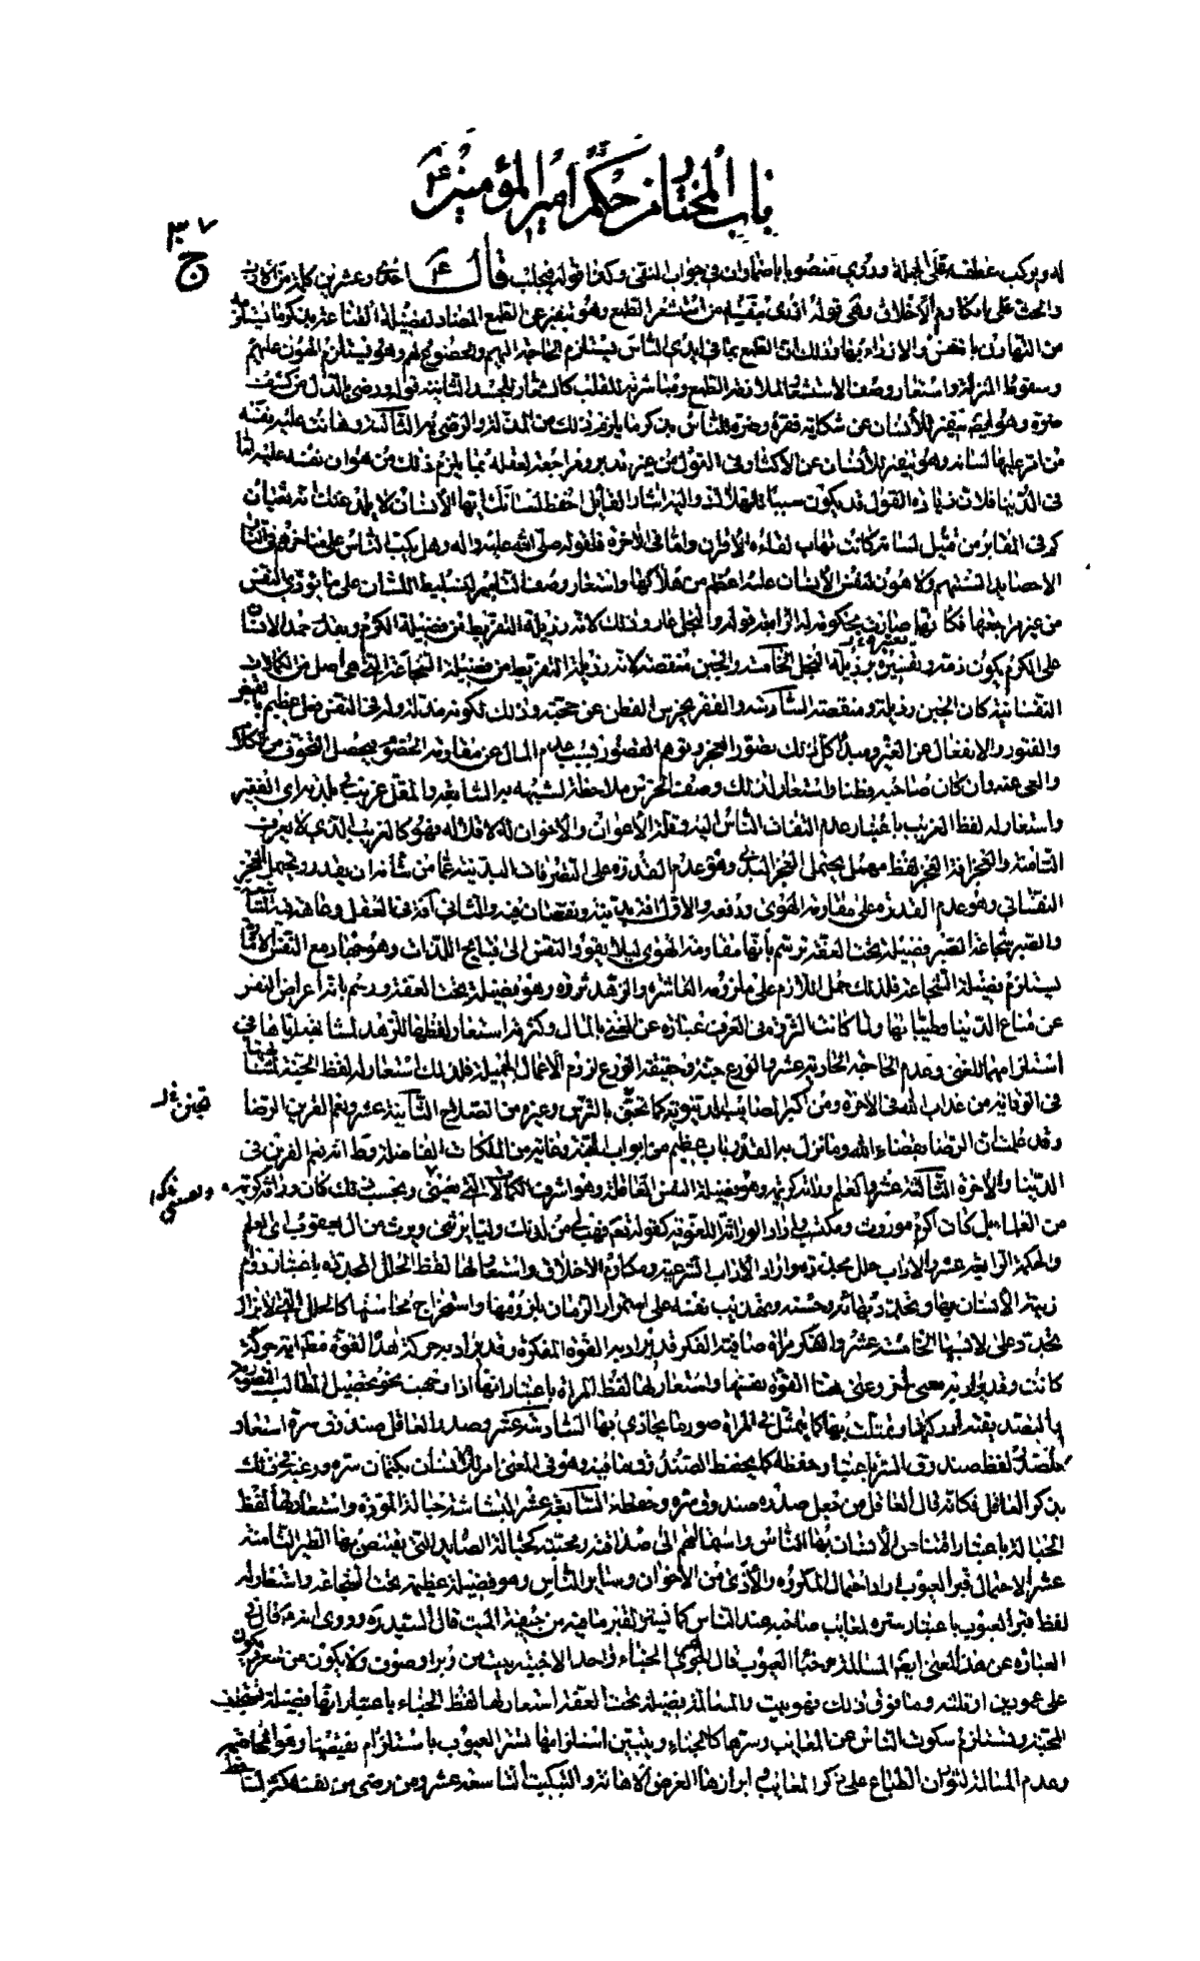 باب المختار من حكم أمير المؤمنين ع
٣٧
ج
له ويركب عطفه على الجملة وروى منصوبا باضمار ان في جواب النفى وكذا قوله فيحلب قال ع احدى وعشرين كلمة من
والحث على مكارم الأخلاق وهي قوله ازرى بنفسه من استشعر الطمع وهو تنفير عن الطمع المضاد لفضيلة القناعة بذكر ما يستلزمه
من التهاون بالنفس والازراء بها وذلك ان الطمع بما في ايدى الناس يستلزم الحاجة اليهم والخضوع لهم وهو يستلزم الهون عليهم
وسقوط المنزلة واستعار وصف الاستشعار لملازمة الطمع ومباشرته للقلب كالشعار للجسد الثانية قوله ورضى بالذل من كشف
ضره وهو ايضا تنفير للأنسان عن شكاية فقره وضره للناس بذكر ما يلزم ذلك من المذلة والرضى بها الثالثة وهانت عليه نفسه
من امر عليها لسانه وهو تنفير للأنسان عن الأكثار في القول من غير تدبر ومراجعة لعقله بما يلزم ذلك من هوان نفسه عليه اما
في الدنيا فلان زيادة القول قد يكون سببا للهلاك واليه اشار القائل احفظ لسانك ايها الأنسان لا يلدغنك انه ثعبان
كم في المقابر من قتيل لسانه كانت تهاب لقاءه الأقران واما في الآخرة فلقوله صلى الله عليه واله وهل يكب الناس على مناخرهم في النار
الا حصايد السنتهم ولا هون لنفس الأنسان عليه اعظم من هلاكها واستعار وصف التأمير لتسليط اللسان على ما يؤذى النفس
من غير مراجعتها فكانها صارت محكومة له الرابعة قوله والبخل عار وذلك لانه رذيلة التفريط من فضيلة الكرم وبقدر حمد الانسان
على الكرم يكون ذمه وتعييره برذيلة البخل الخامسة والجبن منقصة لانه رذيلة التفريط من فضيلة الشجاعة التي هي اصل من الكمالات
النفسانية كان الجبن رذيلة ومنقصة السادسة والفقر يخرس الفطن عن حجته وذلك لكونه مذلة وله في النفس فعل عظيم بالتغير
والفتور والانفعال عن الغير ومبدأ كل ذلك تصور العجز وتوهم القصور بسبب عدم المال عن مقاومة الخصوم فيحصل الخوف من الكلام
والعى عنه وان كان صاحبه فطنا واستعار لذلك وصف الخرس ملاحظة لشبهه به السابعة والمقل غريب في بلدته اى الفقير
واستعار له لفظ الغريب باعتبار عدم التفات الناس اليه وقلة الأعوان والأخوان له لاقلاله فهو كالغريب الذي لا يعرف
الثامنة والعجز افة العجز لفظ مهمل يحتمل العجز البدنى وهو عدم القدرة على التصرفات البدنية عما من شأنه ان يقدر ويحتمل العجز
النفساني وهو عدم القدرة على مقاومة الهوى ودفعه والأول افة بدنية ونقصان فيه والثاني آفة في العقل وعاهة فيه التاسعة
والصبر شجاعة الصبر فضيلة تحت العفة ترسم بأنها مقاومة الهوى ليلا يقود النفس الى قبايح اللذات وهو جهاد مع النفس الامارة
يستلزم فضيلة الشجاعة فلذلك حمل اللازم على ملزومه العاشرة والزهد ثروة وهو فضيلة تحت العفة ورسم بانه اعراض النفس
عن متاع الدنيا وطيباتها ولما كانت الثروة في العرف عبارة عن الغنى بالمال وكثرته استعار لفظها للزهد لمشابهته اياها في
استلزامهما للغنى وعدم الحاجة الحادية عشر والورع جنة وحقيقة الورع لزوم الأعمال الجميلة فلذلك استعار له لفظ الجنة لمشابهتها
في الوقاية من عذاب الله في الآخرة ومن اكبر المصائب الدنيوية كما تحقق بالشرف وغيره من الصلاح الثانية عشر ونعم القرين الرضا
وقد علمت ان الرضا بقضاء الله وما نزل به القدر باب عظيم من ابواب الجنة وغاية من الملكات الفاضلة وظ انه نعم القرين في
الدنيا والآخرة الثالثة عشر والعلم وراثة كريمة وهو فضيلة النفس العاقلة وهو اشرف الكمالات التي تقتنى وبحسب ذلك كان وراثة كريمة
من العلماء بل كان اكرم موروث ومكتسب واراد الوراثة المعنوية كقوله تعم فهب لى من لدنك وليا يرثنى ويرث من ال يعقوب اى العلم
والحكمة الرابعة عشر والآداب حلل مجددة واراد الآداب الشرعية ومكارم الأخلاق واستعار لها لفظ الحلل المجددة باعتبار دوام
زينة الأنسان بها وتجدد بهائه وحسنه وتهذيب نفسه على استمرار الزمان بلزومها واستخراج محاسنها كالحلل التي لا يزال
تجدد على لابسها الخامسة عشر والفكر مرآة صافية الفكر قد يراد به القوة المفكرة وقد يراد به حركة هذه القوة مطلقا اية حركة
كانت وقد يراد به معنى اخر وعنى هنا القوة نفسها واستعار لها لفظ المرآة باعتبار انها اذا وجهت نحو تحصيل المطالب التصورية
والتصديقية ادركتها وتمثلت بها كما يتمثل في المرآة صور ما يحاذى بها السادسة عشر وصدر العاقل صندوق سره استعار
لصدره لفظ صندوق السر باعتبار حفظه كما يحفظ الصندوق ما فيه وهو في المعنى امر الأنسان بكتمان سره ورغبه في ذلك
بذكر العاقل فكانه قال العاقل من جعل صدره صندوق سره وحفظه السابعة عشر البشاشة حبالة المودة واستعار لها لفظ
الحبالة باعتبار اقتناص الأنسان بها الناس واستمالتهم الى صداقته ومحبته كحبالة الصايد التي يقتنص بها الطير الثامنة
عشر الاحتمال قبر العيوب اراد احتمال المكروه والأذى من الأخوان وساير الناس وهو فضيلة عظيمة تحت الشجاعة واستعار له
لفظ قبر العيوب باعتبار ستره لمعايب صاحبه عند الناس كما يستر القبر ما فيه من جيفة الميت قال السيد ره وروى انه ع قال في
العبارة عن هذا المعنى ايضا المسالمة خبأ العيوب قال الجوهرى الخباء واحد الاخبية بيت من وبر او صوف ولا يكون من شعر ويكون
على عمودين او ثلثة وما فوق ذلك فهو بيت والمسالمة فضيلة تحت العفة استعار لها لفظ الخباء باعتبار انها فضيلة
المحبة وتستلزم سكوت الناس عن المعايب وسترها كالخباء ويتبين استلزامها لستر العيوب باستلزام نقيضها وهو
وعدم المسالمة لثوران الطباع على ذكر المعايب وابرازها الغرض الاهانة والتبكيت التاسعة عشر ومن رضى عن نفسه كثر الساخط